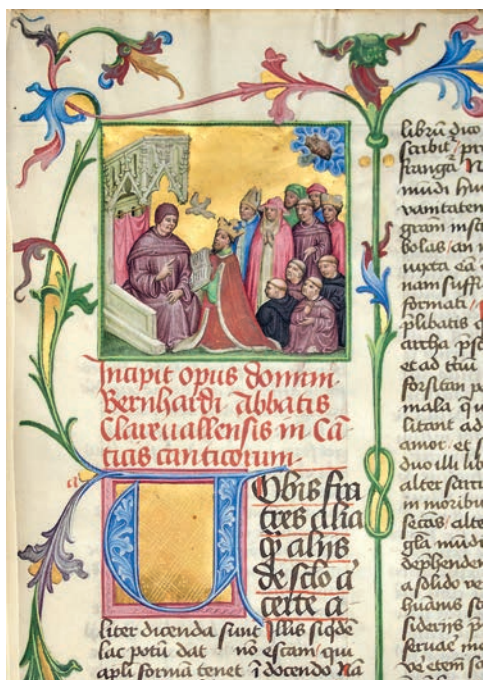 Incipit opus domini
Bernhardi Abbatis
Clarevallensis in Cā
ticis canticorum.
a
Uobis fra
tres alia
q̄ alijs
de sclo a
certe a
liter dicenda sunt Illis siqdē
lac potū dat no estam, qui
apli formā tenet ī docendo Na
librū dico
scribit pro
frangā
mūdi hui
vanitatem
gram insti
bolas/an n
iuxta eā e
nam suffi
formati
plibatis q
archa
et ad
forsitan pe
mala qu
litant ad
amor et s
duo illi lib
alter
in moribus
secās/alte
glā mūdi
dephender
a solido ve
huāns sc
siderijs p
servae mo
ve etem so